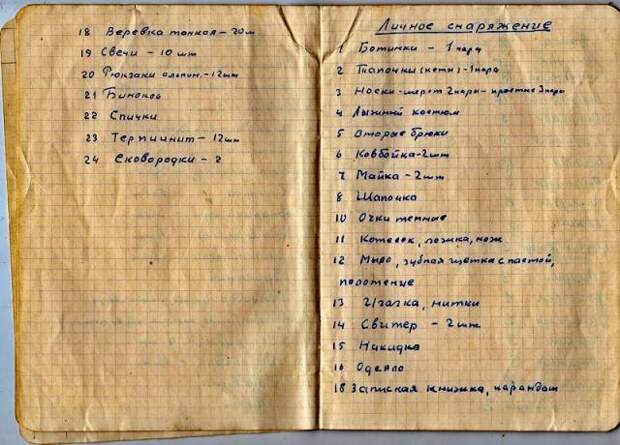 18 Веревка тонкая - 20 м
19 Свечи - 10 шт
20 Рюкзаки альпин. - 12 шт
21 Бинокль
22 Спички
23 Термшнит - 12 шт
24 Сковородки - 2
Личное снаряжение
1 Ботинки - 1 пара
2 Тапочки (кеты) - 1 пара
3 Носки - шерст 2 пары - простые 3 пары
4 Лыжный костюм
5 Вторые брюки
6 Ковбойка - 2 шт
7 Майка - 2 шт
8 Шапочка
10 Очки темные
11 Котелок, ложка, нож
12 Мыло, зубная щетка с пастой,
полотенце
13 Иголка, нитки
14 Свитер - 2 шт.
15 Накидка
16 Одеяло
18 Записная книжка, карандаш